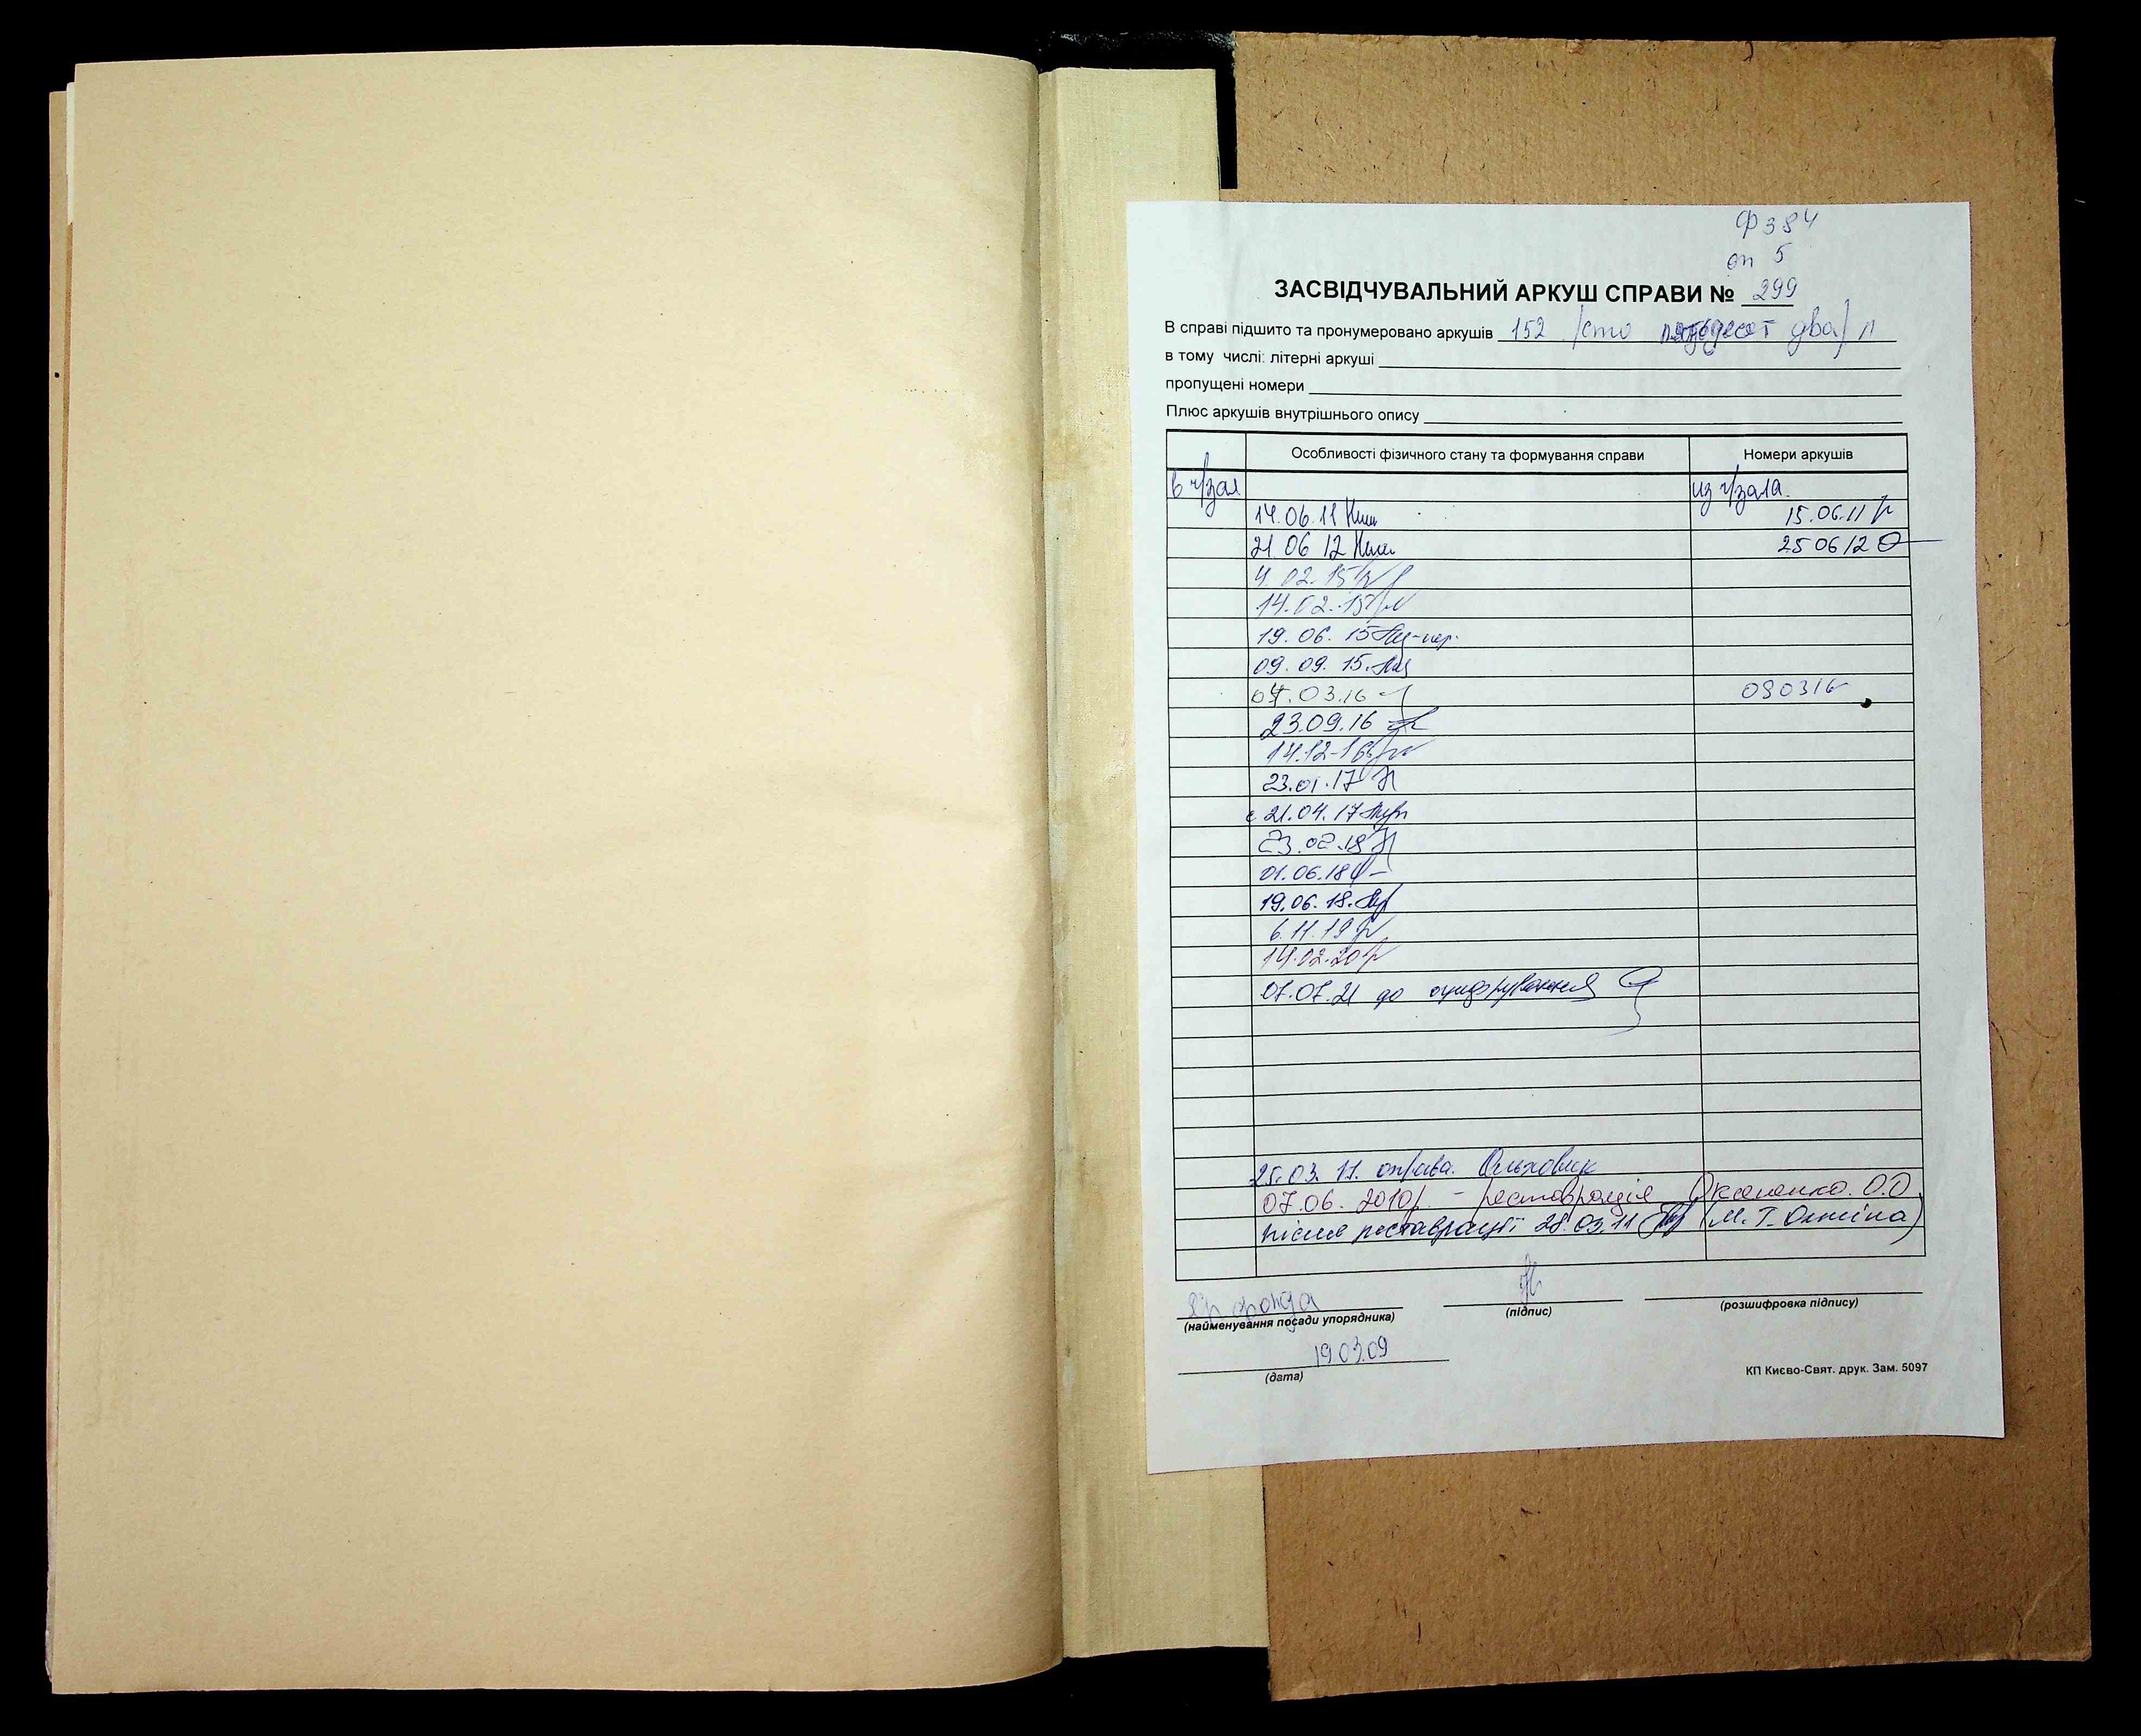 Ф 384
оп 5
ЗАСВІДЧУВАЛЬНИЙ АРКУШ СПРАВИ № 299
В справі підшито та пронумеровано аркушів 152 /сто п'ятдесят два/
в тому числі: літерні аркуші
пропущені номери
Плюс аркушів внутрішнього опису
Особливості фізичного стану та формування справи Номери аркушів
в ч/зал из ч/зала.
14.06.11 15.06.11
21.06 12 25 06 12
4.02.15
14.02.15
19.06.15
09.09.15.
04.03.16 090316
23.09.16
14.12-16
23.01.17
21.04.17
23.02.18
01.06.18
19.06.18.
6.11.19
14.02.20
07.07.21 до оцифрування
25.03.11. оправа. Ольховик
07.06.2010р. - реставрація О.О
після реставрації 28.03.11 (М.Т.
фонда
(найменування посади упорядника) (підпис) (розшифровка підпису)
19.03.09
(дата)
КП Києво-Свят. друк. Зам. 5097